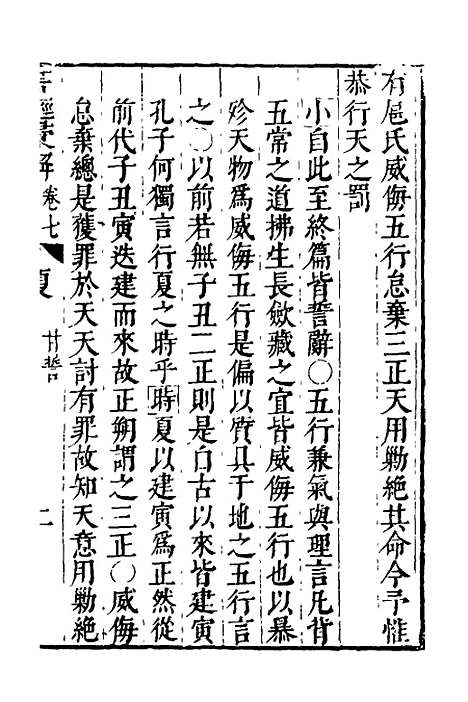 有扈氏威侮五行怠棄三正天用勦絕其命今予惟
恭行天之罰
小自此至終篇皆誓辭○五行兼氣與理言凡背
五常之道拂生長斂藏之宜皆威侮五行也以暴
殄天物爲威侮五行是偏以質具于地之五行言
之○以前若無子丑二正則是自古以來皆建寅
孔子何獨言行夏之時乎時夏以建寅爲正然從
前代子丑寅迭建而來故正朔謂之三正○威侮
怠棄總是獲罪於天天討有罪故知天意用勦絕
書經 解卷七 夏 甘誓 二